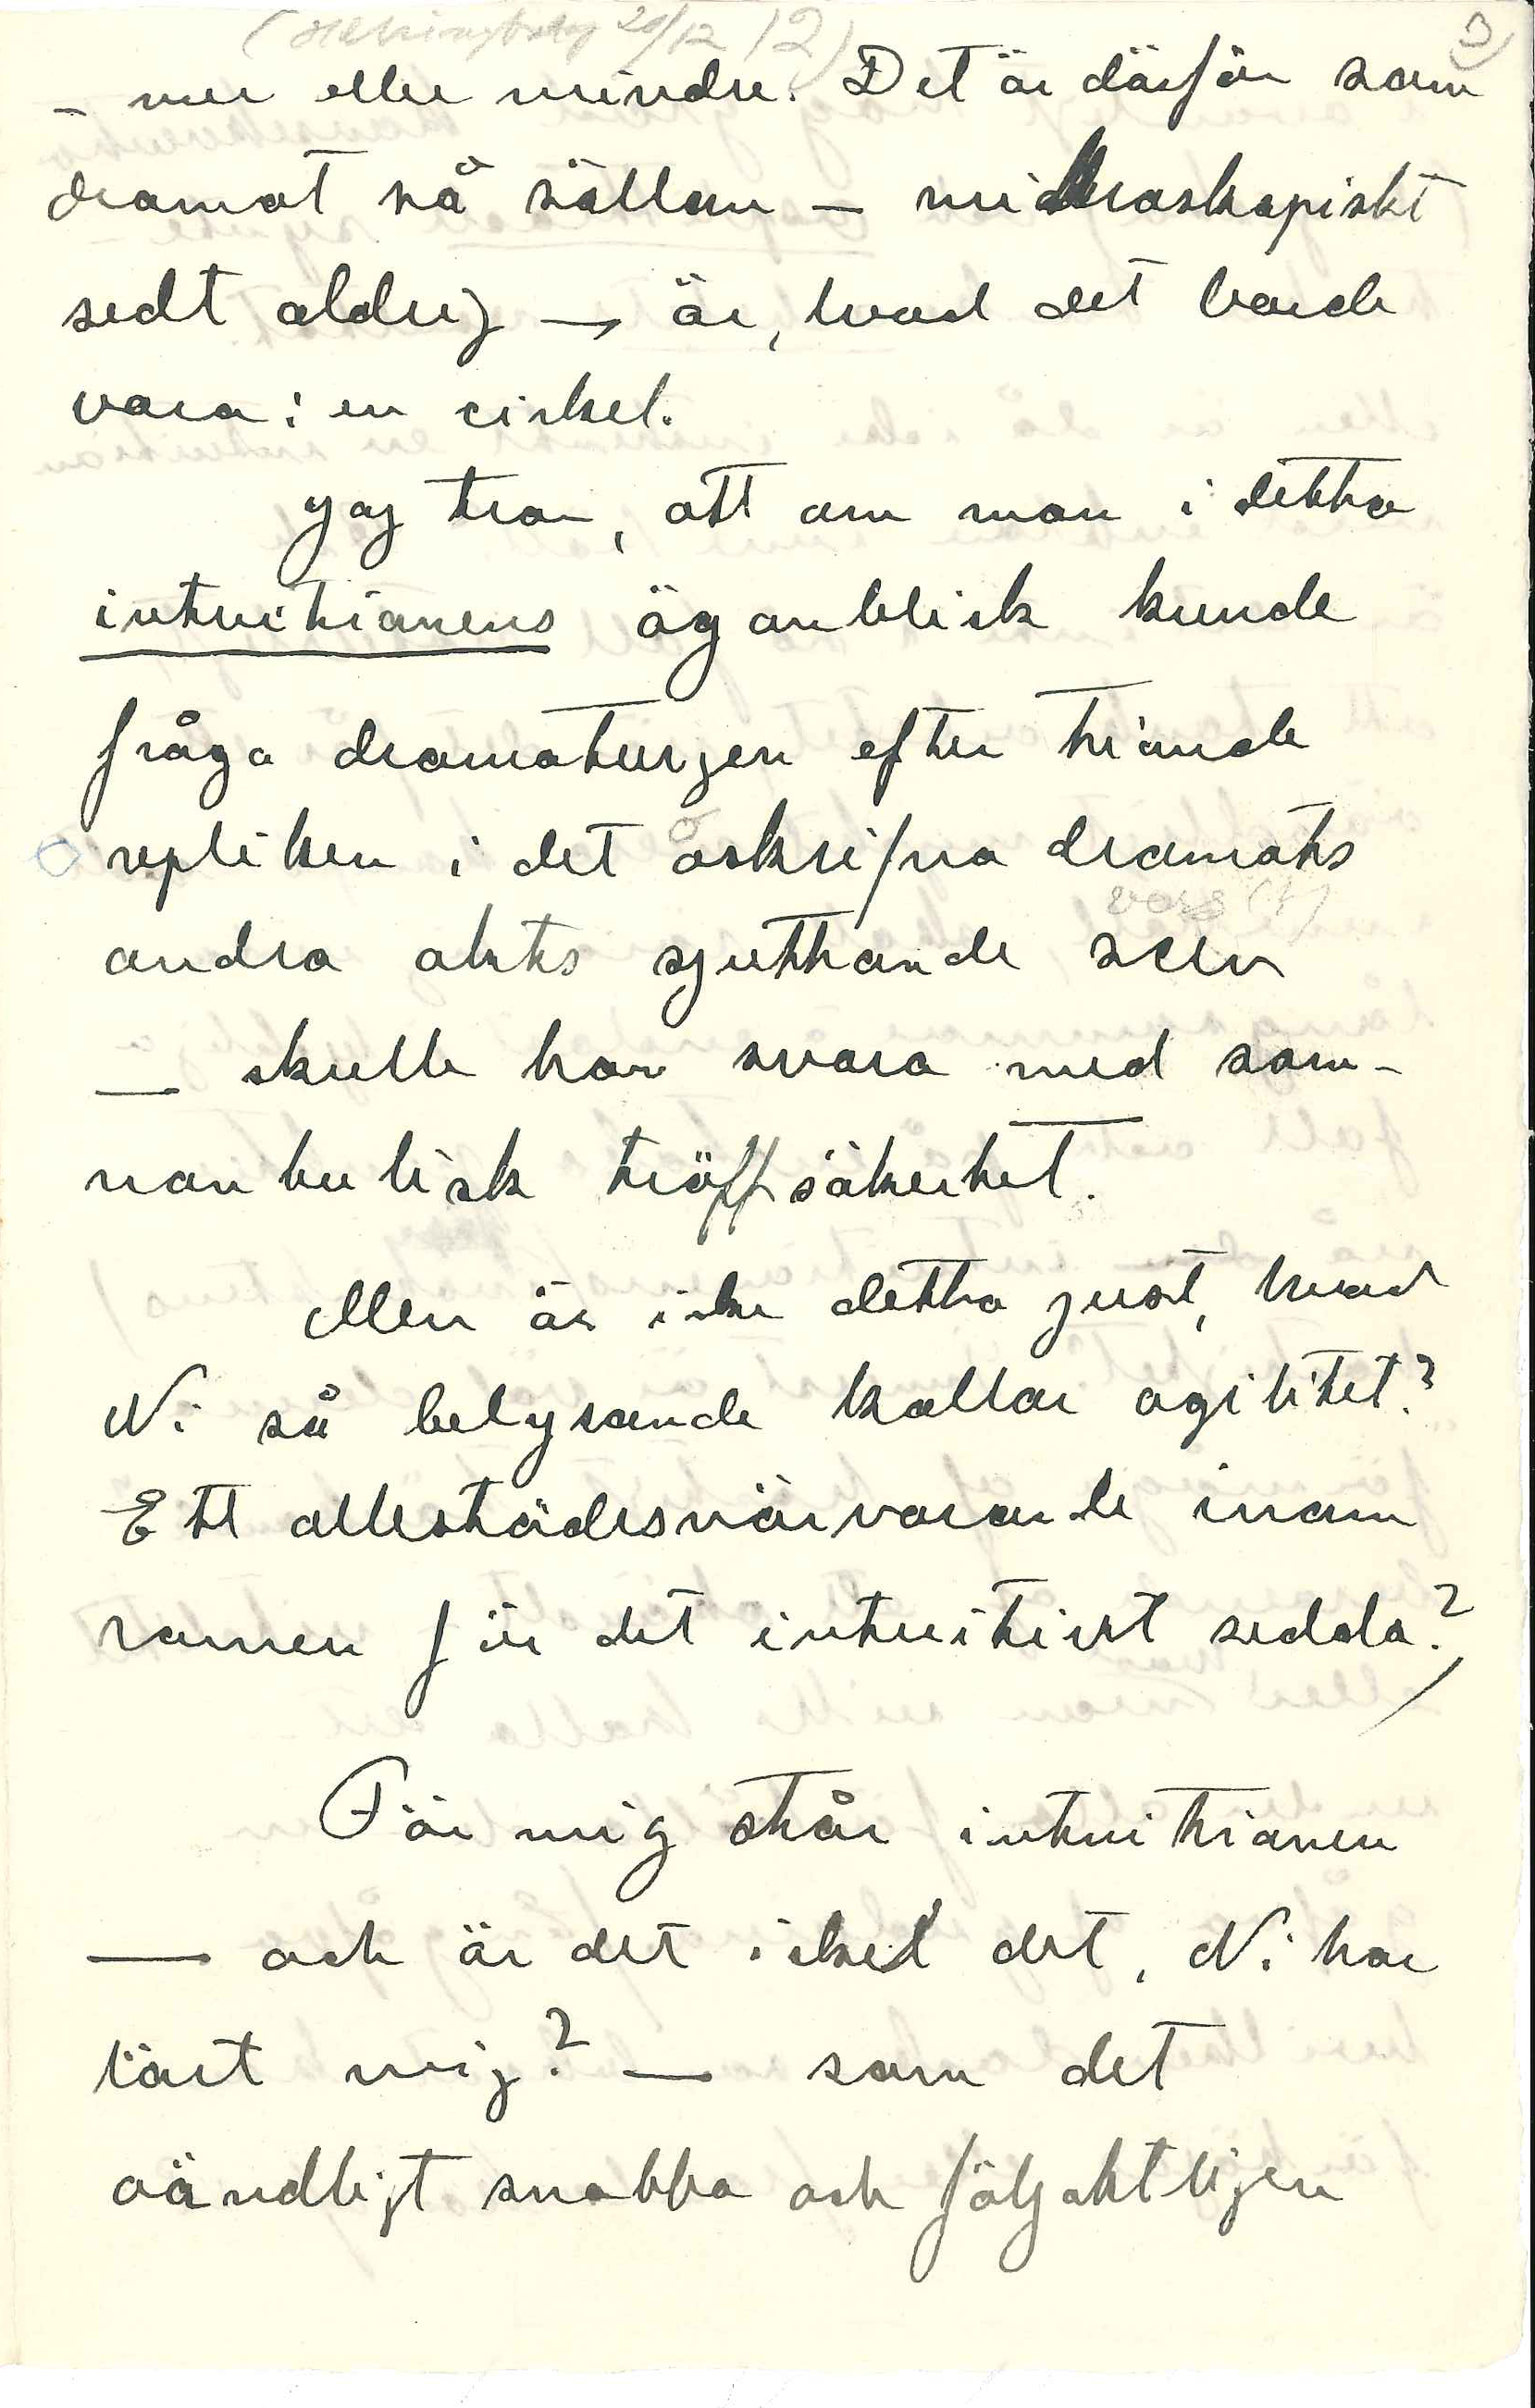 (Helsingborg 20/12 12)
3)
– mer eller mindre. Det är därför som
dramat så sällan – mikroskopiskt
sedt aldrig – är, hvad det borde
vara: en cirkel.
Jag tror, att om man i detta
intuitionens ögonblick kunde
fråga dramaturgen efter tionde
repliken i det oskrifna dramats
andra akts sjuttonde scen
— skulle han svara med som-
nanbulisk träffsäkerhet.
Men är icke detta just, hvad
Ni så belysande kallar agilitet?
Ett allestädesnärvarande inom
ramen för det intuitivt sedda?
För mig står intuitionen
— och är det icke det, Ni har
lärt mig? — som det
oändligt snabba och följaktligen